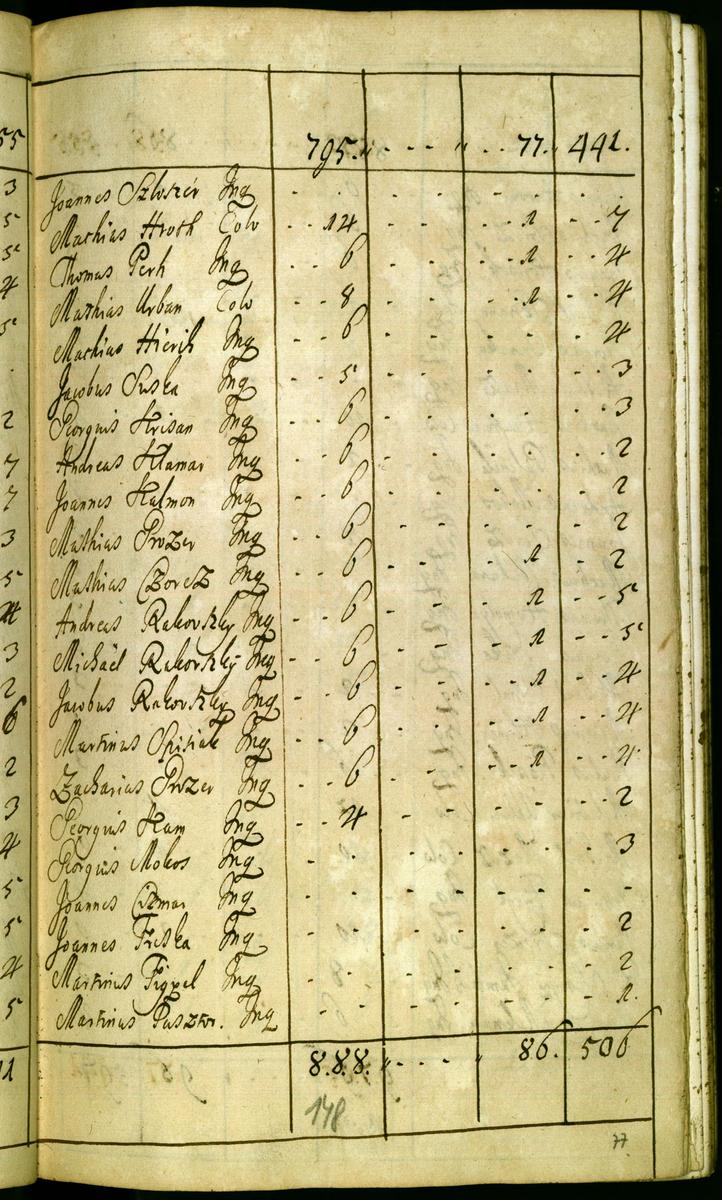 795. " - - - " - - 77. " 441.
Joannes Szloszér Inq - . . . - -
Mathias Hroth Colo - - 14 . . - - 1 - - 7
Thomas Perh Inq - - 6 - - 1 - - 4
Mathias Urban Colo - - 8 - - 1 - - 4
Mathias Hierik Inq - - 6 - - - - 4
Jacobus Suska Inq - - 5 - - - - 3
Georgius Krisan Inq - - 6 - - - - 3
Andreas Hlamar Inq - - 6 - - - - 2
Joannes Kalmon Inq - - 6 - - - - 2
Mathias Prozer Inq - - 6 - - - - 2
Mathias Czorcz Inq - - 6 - - 1 - - 2
Andreas Rakovszky Inq - - 6 - - 1 - - 5
Michaël Rakovszky Inq - - 6 - - 1 - - 5
Jacobus Rakovszky Inq - - 6 - - 1 - - 4
Martinus Spisiak Inq - - 6 - - 1 - - 4
Zacharias Prozer Inq - - 6 - - 1 - - 4
Georgius Kam Inq - - 4 - - - - 2
Georgius Mokos Inq - - - - - - 3
Joannes Czmar Inq - - - - - -
Joannes Friska Inq - - - - - - 2
Martinus Figpel Inq - - - - - - 2
Martinus Pasztor. Inq - - - - - - 1.
8.8.8. " - - - " 86. 506
148
77